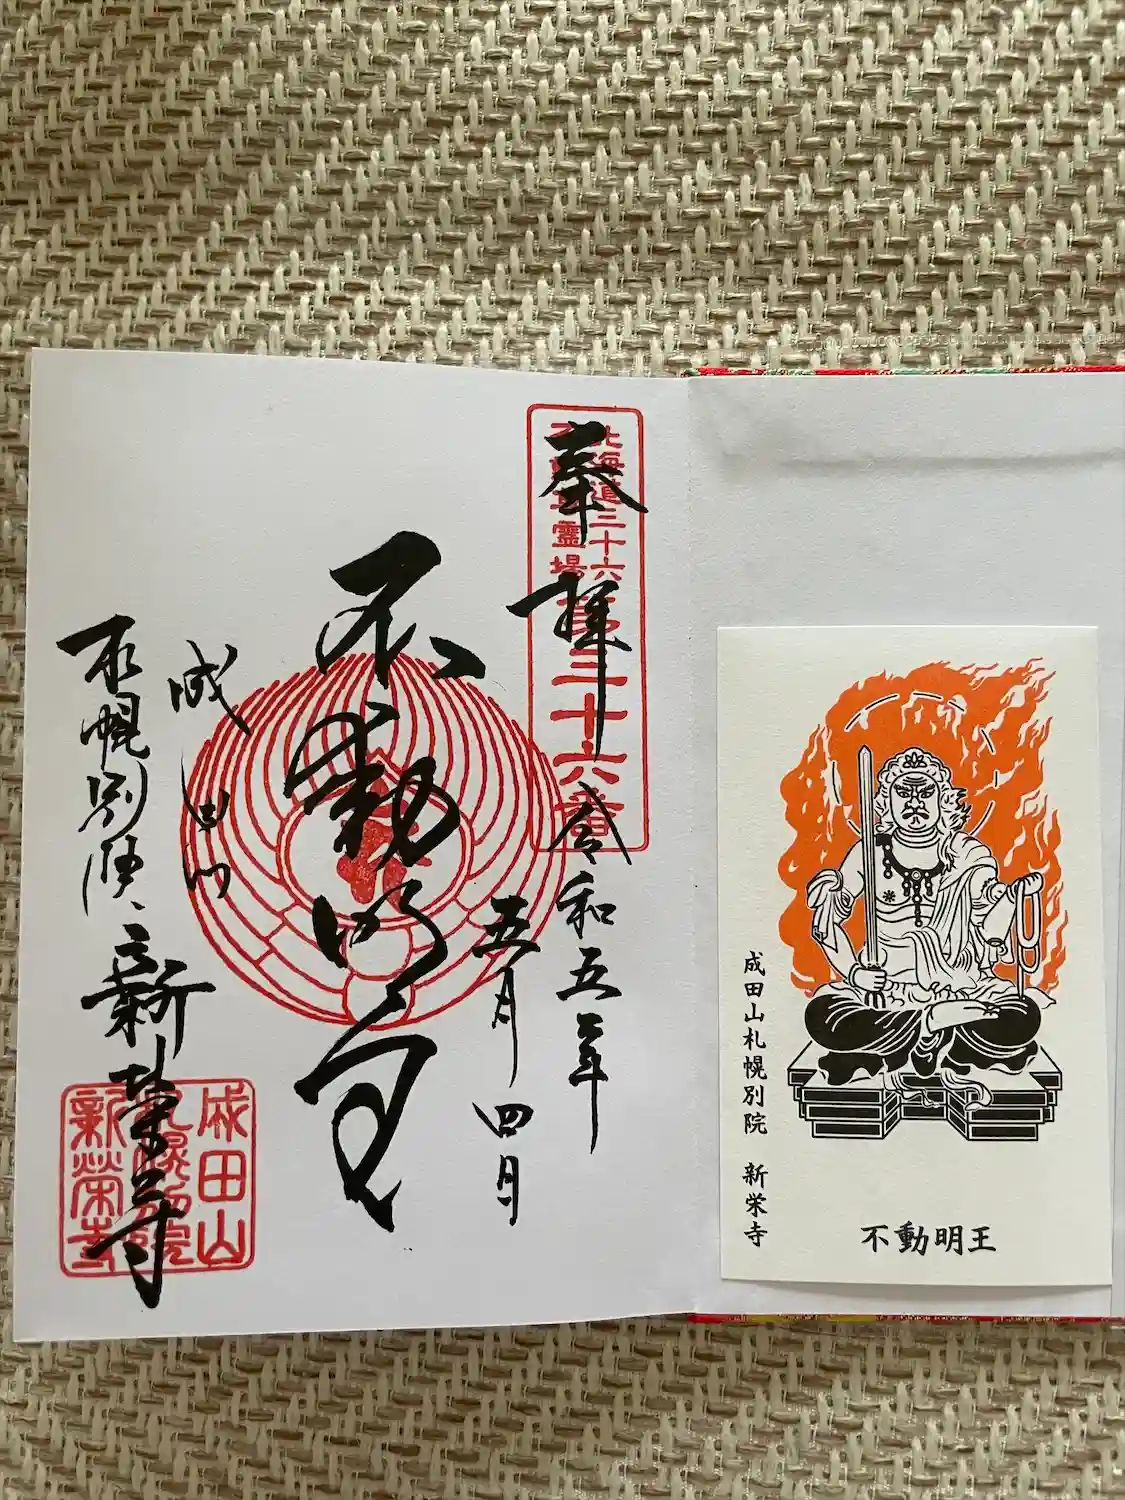 奉拝
北海道三十六
不動尊霊場
第三十六番
令和五年
五月四日
不動明王
成田山
札幌別院
新栄寺
成田山
札幌別院
新榮寺
成田山札幌別院 新栄寺
不動明王